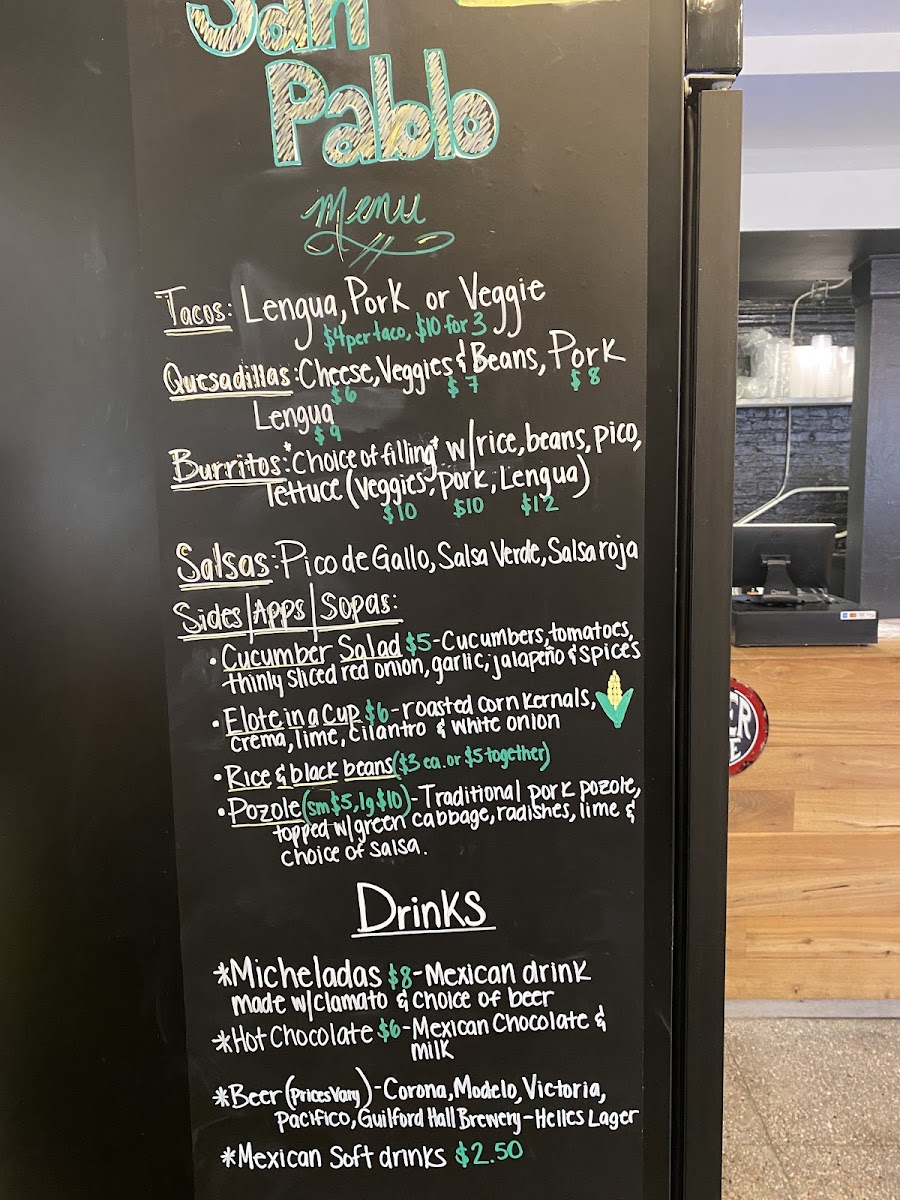 San
Pablo
Menu
Tacos: Lengua, Pork or Veggie
$4 per taco, $10 for 3
Quesadillas: Cheese, Veggies & Beans, Pork
$6 $7 $8
Lengua
$9
Burritos: *Choice of filling* w/rice, beans, pico,
lettuce (Veggies, Pork, Lengua)
$10 $10 $12
Salsas: Pico de Gallo, Salsa Verde, Salsa roja
Sides|Apps|Sopas:
• Cucumber Salad $5-Cucumbers, tomatoes,
thinly sliced red onion, garlic, jalapeño & spices
• Elote in a Cup $6-roasted corn kernals,
crema, lime, cilantro & white onion
• Rice & black beans ($3 ea. or $5 together)
• Pozole (sm $5, lg $10)-Traditional pork pozole,
topped w/green cabbage, radishes, lime &
choice of salsa.
Drinks
*Micheladas $8-Mexican drink
made w/clamato & choice of beer
*Hot Chocolate $6-Mexican Chocolate &
milk
*Beer (prices vary)-Corona, Modelo, Victoria,
Pacifico, Guilford Hall Brewery-Helles Lager
*Mexican Soft drinks $2.50